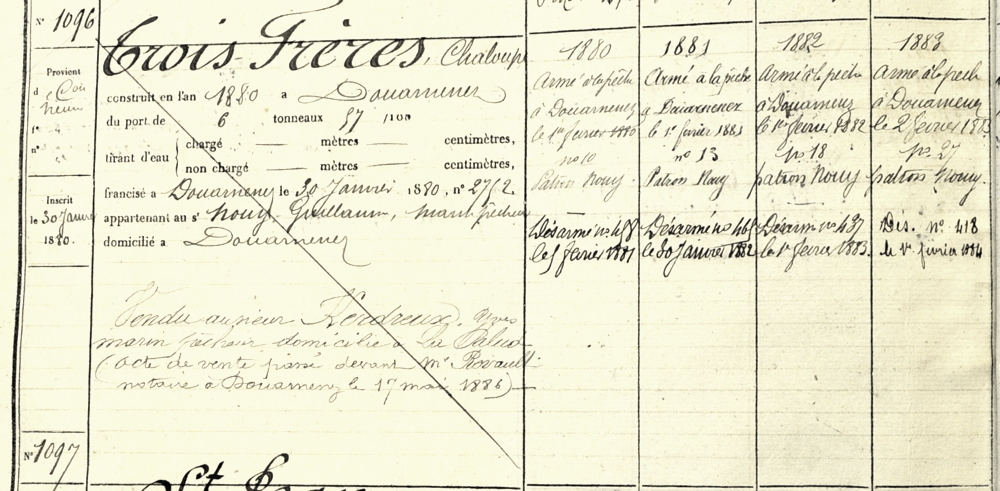 N° 1096
Provient
d
n°
Inscrit
le 30 Janv
1880.
Trois Frères, Chaloupe
construit en l'an 1880 a Douarnenez
du port de 6 tonneaux 57 /100
tirant d'eau
chargé — mètres — centimètres,
non chargé — mètres — centimètres,
francisé a Douarnenez le 30 Janvier 1880, n° 27/2
appartenant au sr Nouy, Guillaume, marin pêcheur
domicilié a Douarnenez
Vendu au sieur Kerdreux, Yves
marin pêcheur domicilié à La Palud
(acte de vente passé devant Me
notaire à Douarnenez le 17 mai 1886)
1880
Armé à la pêche
à Douarnenez
le 1er février 1880
n° 10
Patron Nouy.
Désarmé n° 458
le 5 février 1881
1881
Armé à la pêche
a Douarnenez
le 1er février 1881
n° 13
Patron Nouy
Désarmé n° 465
le 30 Janvier 1882
1882
Armé à la pêche
à Douarnenez
le 1er février 1882
n° 18
patron Nouy
Désarm n° 437
le 1er février 1883.
1883
Armé à la pêche
à Douarnenez
le 2 février 1883
n° 27
patron Nouy.
Dés. n° 418
le 1er février 1884
N° 1097
St Jean